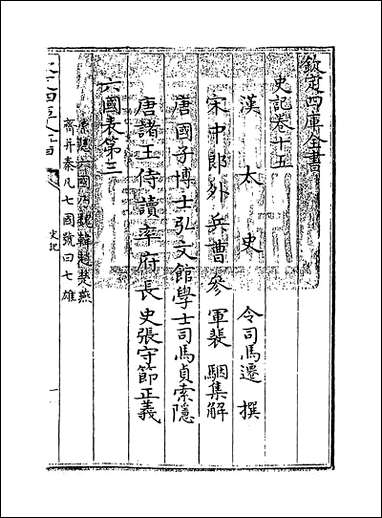 欽定四庫全書
史記卷十五
漢太史令司馬遷撰
宋中郎外兵曹參軍裴駰集解
唐國子博士弘文館學士司馬貞索隱
唐諸王侍讀率府長史張守節正義
六國表第三
索隱六國乃魏韓趙楚燕
齊并秦凡七國號曰七雄
史記
一